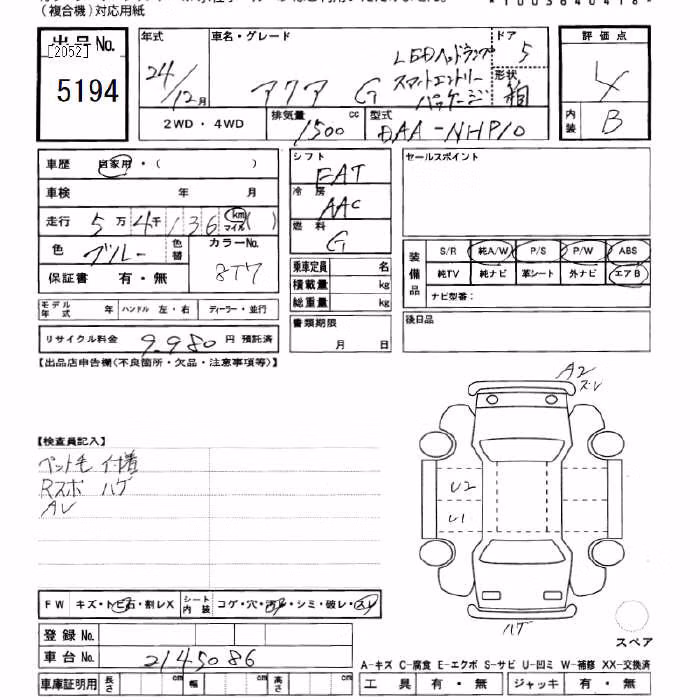 (複合機)対応用紙
出品 No.
[2052]
5194
年式
24/12月
車名・グレード
アクア G
LEDヘッドランプ
スマートエントリー
パッケージ
ドア
5
形状
箱
2WD・4WD
排気量
1500 cc
型式
DAA-NHP10
評価点
4
内装
B
車歴 自家用・( )
車検 年 月
走行 5万 4千 136 km マイル( )
色 ブルー 色替
カラーNo.
8T7
保証書 有・無
モデル年式 年 ハンドル 左・右 ディーラー・並行
リサイクル料金 9,980 円 預託済
シフト
FAT
冷房
AAC
燃料
G
乗車定員 名
積載量 kg
総重量 kg
書類期限
月 日
セールスポイント
装備品
S/R 純A/W P/S P/W ABS
純TV 純ナビ 革シート 外ナビ エアB
ナビ型番:
後日品
【出品店申告欄(不良箇所・欠品・注意事項等)】
【検査員記入】
ペット毛 付着
Rスポ ハゲ
AV
A2
ズレ
U2
U1
ハゲ
スペア
FW キズ・トビ石・割レX
シート内装 コゲ・穴・汚レ・シミ・破レ・スレ
登録 No.
車台 No. 2145086
車庫証明用 長さ cm 幅 cm 高さ cm
A-キズ C-腐食 E-エクボ S-サビ U-凹ミ W-補修 XX-交換済
工具 有・無 ジャッキ 有・無